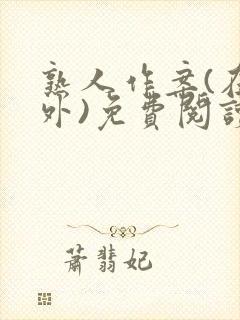 熟人作案(在
外)免費閱讀
蕭翡妃